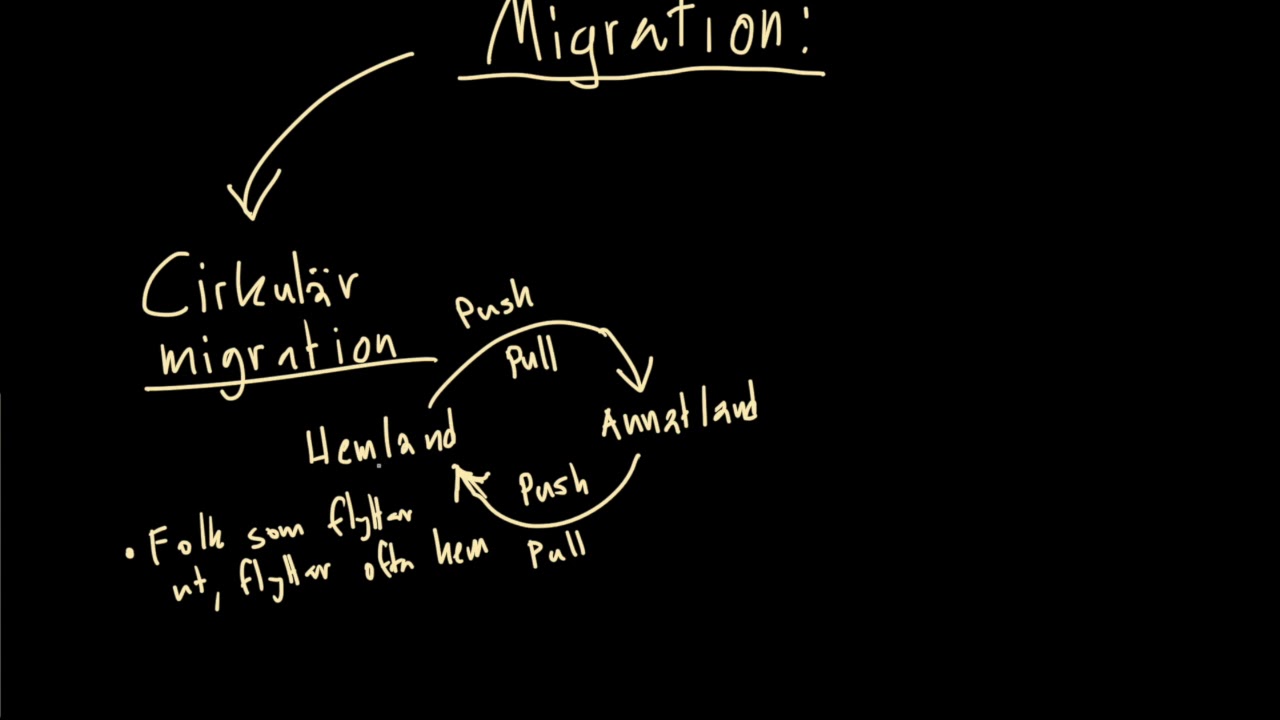 Migration:
Cirkulär
migration
Push
Pull
Hemland
Annat land
Push
Pull
• Folk som flyttar
ut, flyttar ofta hem